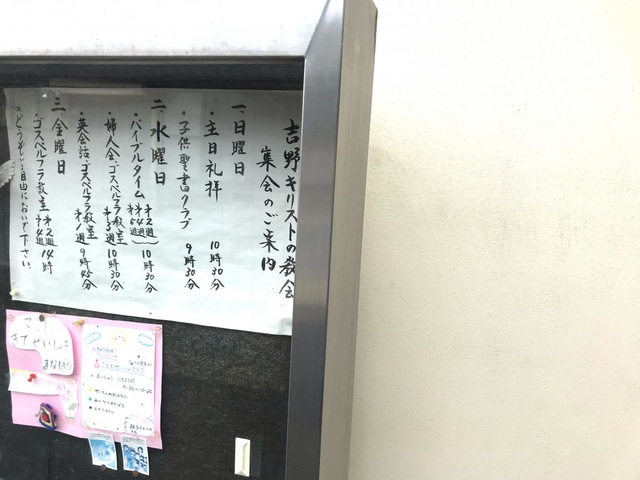 吉野キリストの教会
集会のご案内
一、日曜日
・主日礼拝 10時30分
・子供聖書クラブ 9時30分
二、水曜日
・バイブルタイム 才2週 才4週 10時30分
・婦人会、ゴスペルフラ教室 才3週 10時30分
・英会話、ゴスペルフラ教室 才1週 9時45分
三、金曜日
・ゴスペルフラ教室 才2週 才4週 14時
どうぞご自由においで下さい。
きて
せいしょ
まなぼう
9:30~10:20